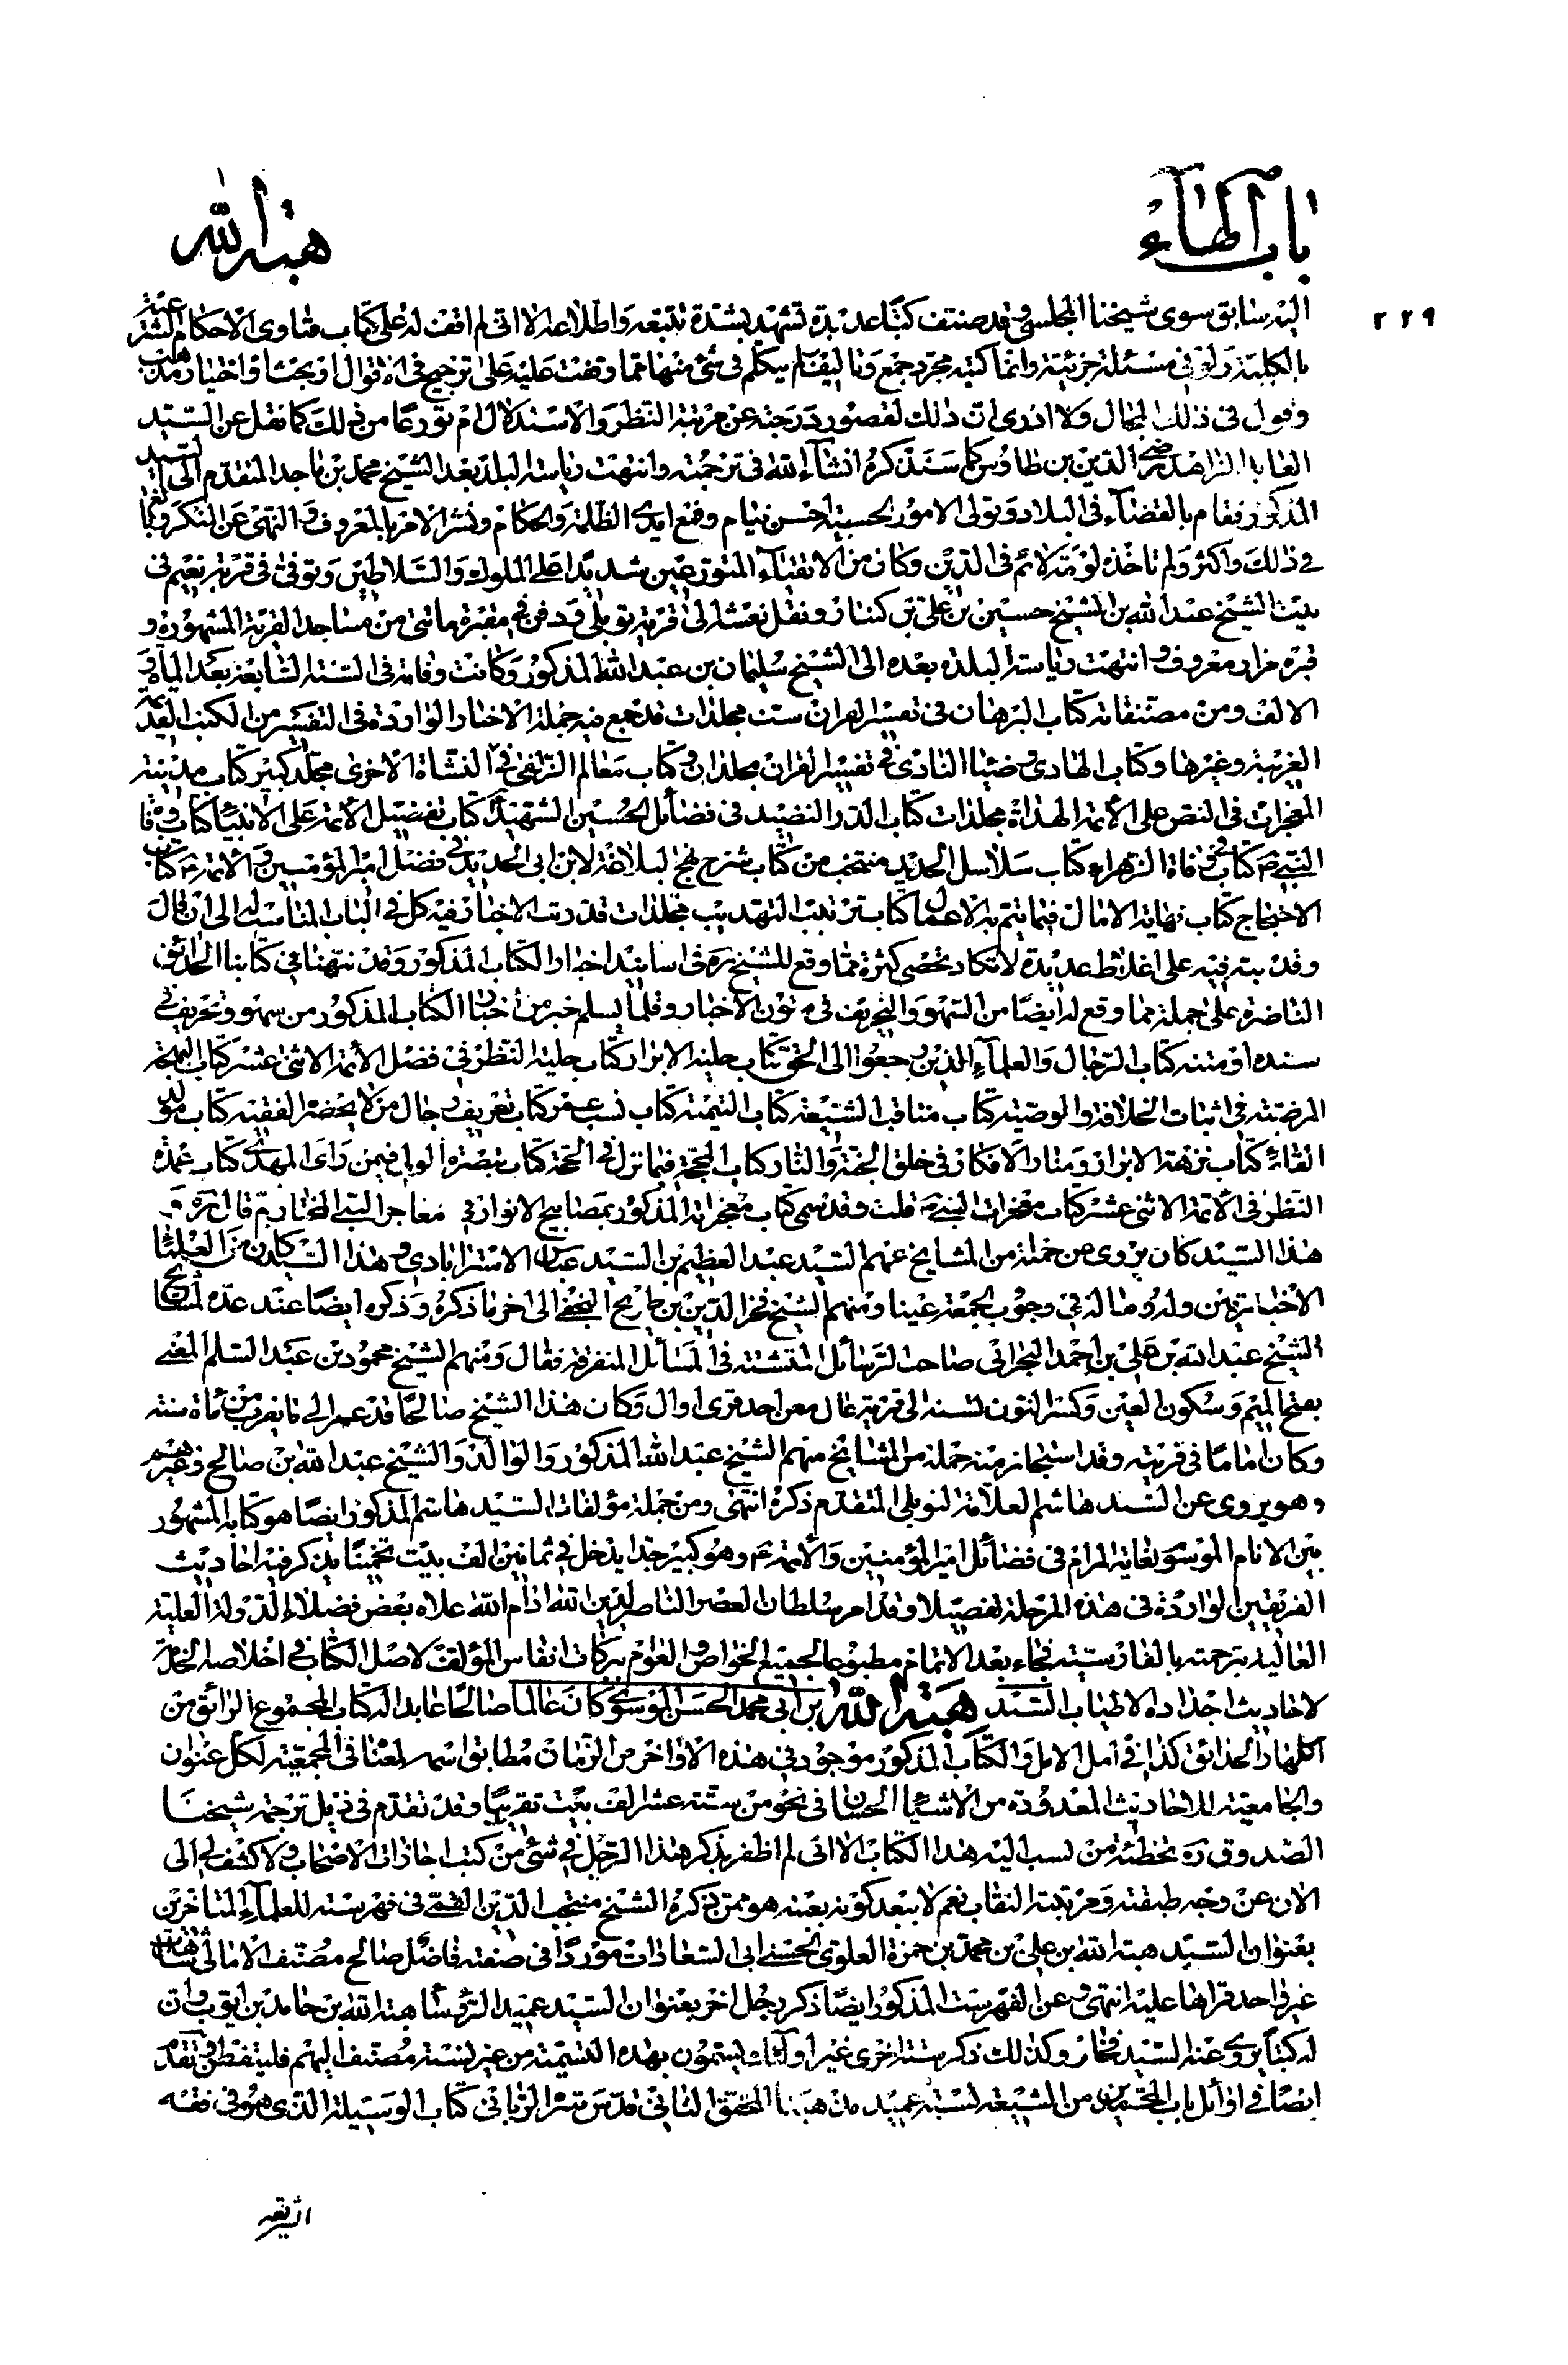 باب الهاء
هبة الله
٢٢٩
اليه سابق سوى شيخنا المجلسى وقد صنف كتبا عديدة تشهد بشدة تتبعه واطلاعه الا انى لم اقف له على كتاب فتاوى الاحكام الشرعية
بالكلية ولو فى مسئلة جزئية وانما كتبه مجرد جمع وتاليف لم يتكلم فى شئ منها مما وقفت عليه على ترجيح فى الاقوال او بحث او اختيار مذهب
وقول فى ذلك المجال ولا ادرى ان ذلك لقصور درجته عن مرتبة النظر والاستدلال ام تورعا من ذلك كما نقل عن السيد
العابد الزاهد رضى الدين بن طاوس كما سنذكره انشاء الله فى ترجمته وانتهت رياسة البلد بعد الشيخ محمد بن ماجد المتقدم الى السيد
المذكور فقام بالقضاء فى البلاد وتولى الامور الحسبية احسن قيام وقمع ايدى الظلمة والحكام ونشر الامر بالمعروف والنهى عن المنكر وبالغ
فى ذلك واكثر ولم تاخذه لومة لائم فى الدين وكان من الاتقياء المتورعين شديدا على الملوك والسلاطين وتوفى فى قرية نعيم فى
بيت الشيخ عبد الله بن الشيخ حسين بن على بن كنبار ونقل نعشه الى قرية توبلى ودفن فى مقبرة ماتنى من مساجد القرية المشهورة و
قبره مزار معروف وانتهت رياسة البلد بعده الى الشيخ سليمان بن عبد الله المذكور وكانت وفاته فى السنة السابعة بعد المأة و
الالف ومن مصنفاته كتاب البرهان فى تفسير القران ست مجلدات قد جمع فيه جملة الاخبار الواردة فى التفسير من الكتب القديمة
الغريبة وغيرها وكتاب الهادى وضياء النادى فى تفسير القران مجلدان وكتاب معالم الزلفى فى النشاة الاخرى مجلد كبير كتاب مدينة
المعجزات فى النص على الأئمة الهداة مجلدات كتاب الدر النضيد فى فضائل الحسين الشهيد كتاب تفضيل الأئمة على الانبياء كتاب وفاة
النبى ص كتاب وفاة الزهراء كتاب سلاسل الحديد منتخب من كتاب شرح نهج البلاغة لابن ابى الحديد فى فضل امير المؤمنين والائمة ع كتاب
الاحتجاج كتاب نهاية الامال فيما يتم به الاعمال كتاب ترتيب التهذيب مجلدات قد رتب الاخبار فيه كل فى الباب المناسب له الى ان قال
وقد نبه فيه على اغلاط عديدة لا تكاد تحصى كثرة مما وقع للشيخ ره فى اسانيد اخبار الكتاب المذكور وقد نبهنا فى كتابنا الحدائق
الناضرة على جملة مما وقع له ايضا من السهو والتحريف فى متون الاخبار وقلما يسلم خبر من اخبار الكتاب المذكور من سهو وتحريف فى
سنده او متنه كتاب الرجال والعلماء الذين رجعوا الى الحق كتاب حلية الابرار كتاب حلية النظر فى فضل الأئمة الاثنى عشر كتاب البهجة
المرضية فى اثبات الخلافة والوصية كتاب مناقب الشيعة كتاب اليتيمة كتاب نسب عمر كتاب تعريف رجال من لا يحضره الفقيه كتاب مولد
القائم كتاب نزهة الابرار ومنار الافكار فى خلق الجنة والنار كتاب المحجة فيما نزل فى الحجة كتاب تبصرة الولى فيمن راى المهدى كتاب عمدة
النظر فى الأئمة الاثنى عشر كتاب معجزات النبى ص قلت وقد سمى كتاب معجزاته المذكور بمصابيح الانوار فى معاجز النبى المختار ثم قال ره و
هذا السيد كان يروى عن جملة من المشايخ عنهم السيد عبد العظيم بن السيد عباس الاسترابادى وهذا السيد كان من العلماء
الاخباريين وله رسالة فى وجوب الجمعة عينا ومنهم الشيخ فخر الدين بن طريح النجفى الى اخر ما ذكره وذكره ايضا عند عده لمشايخ
الشيخ عبد الله بن على بن احمد البحرانى صاحب الرسائل المتشتتة فى المسائل المتفرقة فقال ومنهم الشيخ محمود بن عبد السلم المعنى
بفتح الميم وسكون العين وكسر النون نسبة الى قرية عال معن احد قرى اوال وكان هذا الشيخ صالحا قد عمر الى ما يقرب من مأة سنة
وكان اماما فى قريته وقد استجاز منه جملة من المشايخ منهم الشيخ عبد الله المذكور والوالد والشيخ عبد الله بن صالح وغيرهم
وهو يروى عن السيد هاشم العلامة التوبلى المتقدم ذكره انتهى ومن جملة مؤلفات السيد هاشم المذكور ايضا هو كتابه المشهور
بين الانام الموسوم بغاية المرام فى فضائل امير المؤمنين والأئمة ع وهو كبير جدا يدخل فى ثمانين الف بيت تخمينا يذكر فيه احاديث
الفريقين الواردة فى هذه المرحلة تفصيلا وقد امر سلطان العصر الناصر لدين الله ادام الله علاه بعض فضلاء الدولة العلية
العالية بترجمته بالفارسية فجاء بعد الاتمام مطبوعا لجميع الخواص والعوام ببركات انفاس المؤلف لاصل الكتاب فى اخلاصه الخاص
لاحاديث اجداده الاطياب السيد هبة الله بن ابى محمد الحسن الموسوى كان عالما صالحا عابدا له كتاب المجموع الرائق من
ازهار الحدائق كذا فى امل الامل والكتاب المذكور موجود فى هذه الاواخر من الزمان مطابق اسمه لمعناه فى الجمعية لكل عنوان
والجامعية للاحاديث المعدودة من الاشياء الحسان فى نحو من ستة عشر الف بيت تقريبا وقد تقدم فى ذيل ترجمة شيخنا
الصدوق ره تخطئة من نسب اليه هذا الكتاب الا انى لم اظفر بذكر هذا الرجل فى شئ من كتب اجازات الاصحاب ولا كشف لى الى
الان عن وجه طبقته ومرتبته النقاب نعم لا يبعد كونه بعينه هو من ذكره الشيخ منتجب الدين القمى فى فهرسته للعلماء المتاخرين
بعنوان السيد هبة الله بن على بن محمد بن حمزة العلوى الحسنى ابى السعادات موردا فى صفته فاضل صالح مصنف الامالى شاهدت
غير واحد قراها عليه انتهى وعن الفهرست المذكور ايضا ذكر رجل اخر بعنوان السيد عميد الرؤساء هبة الله بن حامد بن ايوب وان
له كتبا يروى عنه السيد فخار وكذلك ذكر ستة اخرى غير اولئك يسمون بهذه التسمية من غير نسبة مصنف اليهم فليتفطن وتقدم
ايضا فى اوائل باب المحمدين من الشيعة نسبة عميد هبة المحقق الثانى قدس سره الربانى كتاب الوسيلة الذى هو فى فقه
الشريعة